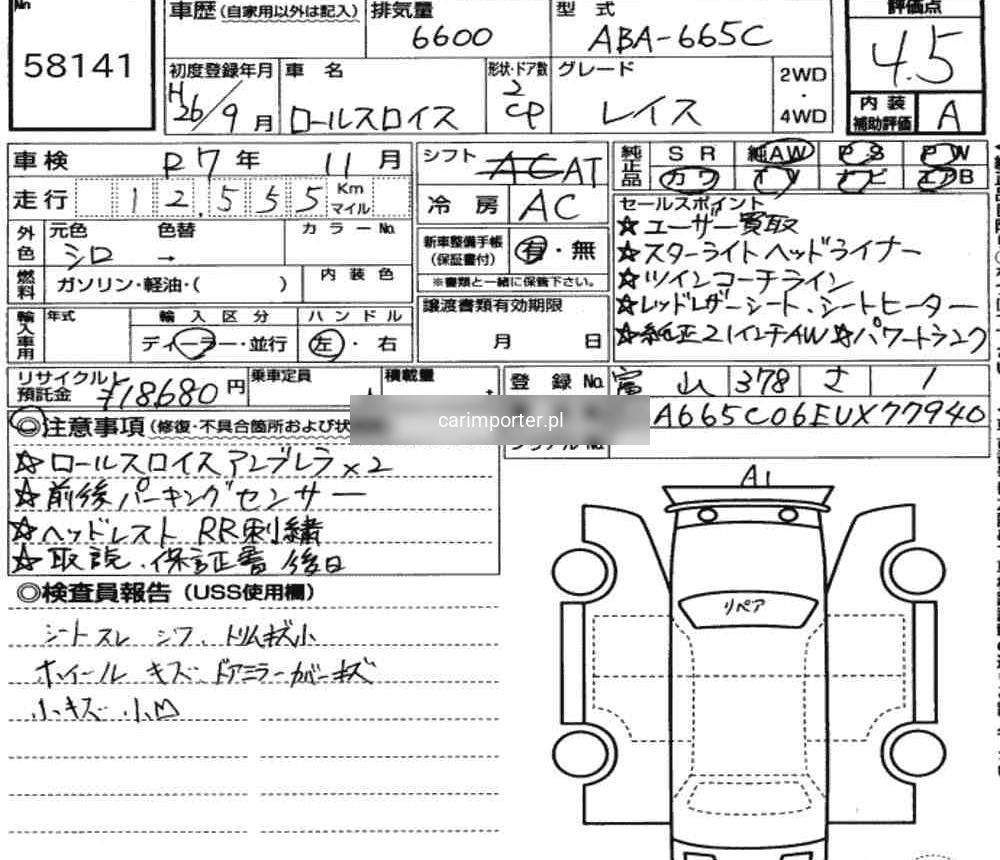 No
58141
車歴 (自家用以外は記入)
排気量
6600
型 式
ABA-665C
評価点
4.5
初度登録年月
H26/9月
車 名
ロールスロイス
形状・ドア数
2
CP
グレード
レイス
2WD
・
4WD
内装
補助評価
A
車検 R7年 11月
走行 12,555 Km
マイル
シフト AC AT
冷房 AC
純正品
SR 純AW PS PW
カワ TV ナビ エアB
セールスポイント
☆ユーザー買取
☆スターライトヘッドライナー
☆ツインコーチライン
☆レッドレザーシート、シートヒーター
☆純正21インチAW ☆パワートランク
外色
元色 色替
シロ →
カラーNo.
燃料
ガソリン・軽油・( )
内装色
新車整備手帳
(保証書付)
有・無
※書類と一緒に保管下さい。
輸入車用
年式
輸入区分
ディーラー・並行
ハンドル
左・右
譲渡書類有効期限
月 日
リサイクル
預託金
¥18680円
乗車定員
人
積載量
登録No. 富山 378 さ 1
A665C06EUX77940
carimporter.pl
◎注意事項 (修復・不具合箇所および状
☆ロールスロイスアンブレラ×2
☆前後パーキングセンサー
☆ヘッドレスト RR刺繍
☆取説、保証書 後日
◎検査員報告 (USS使用欄)
シートスレ シワ、トリムキズ小
ホイール キズ、ドアミラーカバーキズ
小キズ 小凹
A1
リペア